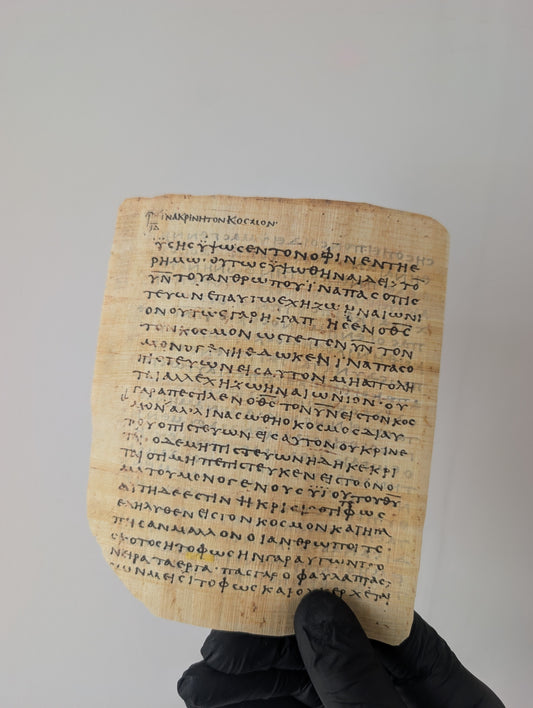 ΙΝΑΚΡΙΝΗΤΟΝΚΟϹΜΟΝ·
ΫϹΗϹΫΨΩϹΕΝΤΟΝΟΦΙΝΕΝΤΗΕ
ΡΗΜΩ·ΟΥΤΩϹΫΨΩΘΗΝΑΙΔΕΙ>ΤΟ̅
Υ̅Ν̅ΤΟΥΑΝΘΡΩΠΟΥΙΝΑΠΑϹΟΠΙϹ
ΤΕΥΩΝΕΠΑΥΤΩΕΧΗΖΩΗΝΑΙΩΝΙ
ΟΝΟΥΤΩϹΓΑΡΗΓΑΠΗϹΕΝΟΘ̅Ϲ̅
ΤΟΝΚΟϹΜΟΝΩϹΤΕΤΟΝΥ̅Ν̅ΤΟΝ
ΜΟΝΟΓΕΝΗΕΔΩΚΕΝΙΝΑΠΑϹΟ
ΠΙϹΤΕΥΩΝΕΙϹΑΥΤΟΝΜΗΑΠΟΛΗ
ΤΑΙΑΛΛΕΧΗΖΩΗΝΑΙΩΝΙΟΝ·ΟΥ
ΓΑΡΑΠΕϹΤΙΛΕΝΟΘ̅Ϲ̅ΤΟΝΥ̅Ν̅ΕΙϹΤΟΝΚΟϹ
ΜΟΝΑΛΛΙΝΑϹΩΘΗΟΚΟϹΜΟϹΔΙΑΥ
ΤΟΥΟΠΙϹΤΕΥΩΝΕΙϹΑΥΤΟΝΟΥΚΡΙΝΕ
ΤΑΙ·ΟΔΕΜΗΠΙϹΤΕΥΩΝΗΔΗΚΕΚΡΙ
ΤΑΙΟΤΙΜΗΠΕΠΙϹΤΕΥΚΕΝΕΙϹΤΟΟΝΟ
ΜΑΤΟΥΜΟΝΟΓΕΝΟΥϹΫΙΟΥΤΟΥΘ̅Υ̅
ΑΥΤΗΔΕΕϹΤΙΝΗΚΡΙϹΙϹΟΤΙΤΟΦΩϹ
ΕΛΗΛΥΘΕΝΕΙϹΤΟΝΚΟϹΜΟΝΚΑΙΗΓΑ
ΠΗϹΑΝΜΑΛΛΟΝΟΙΑΝΘΡΩΠΟΙΤΟ
ϹΚΟΤΟϹΗΤΟΦΩϹΗΝΓΑΡΑΥΤΩΝΠΟ
ΝΗΡΑΤΑΕΡΓΑ·ΠΑϹΓΑΡΟΦΑΥΛΑΠΡΑϹ
ϹΩΝΜΕΙϹΙΤΟΦΩϹΚΑΙΟΥΚΕΡΧΕΤΑΙ